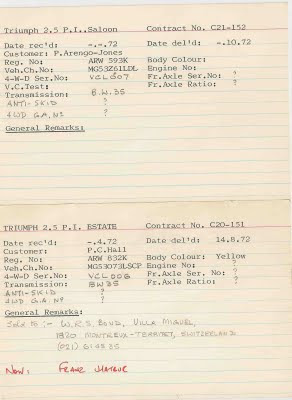 Triumph 2.5 P.I..Saloon Contract No. C21-152
Date rec'd: -.-.72 Date del'd: -.10.72
Customer: P.Arengo-Jones
Reg. No: ARW 593K Body Colour:
Veh.Ch.No: MG53Z61LDL Engine No: ?
4-W-D Ser.No: VCL007 Fr.Axle Ser.No: ?
V.C.Test: Fr.Axle Ratio: ?
Transmission: B.W.35
ANTI-SKID ?
4WD G.A. No ?
General Remarks:
TRIUMPH 2.5 P.I. ESTATE Contract No. C20-151
Date rec'd: -.4.72 Date del'd: 14.8.72
Customer: P.C.Hall
Reg. No: ARW 832K Body Colour: Yellow
Veh.Ch.No: MG53073LSCP Engine No: ?
4-W-D Ser.No: VCL006 Fr.Axle Ser.No: ?
Transmission: BW35 Fr.Axle Ratio: ?
ANTI-SKID ?
4WD G.A. No ?
General Remarks:
Sold to :- W.R.S. BOND, VILLA MIGUEL,
1820 MONTREUX-TERRITET, SWITZERLAND
(021) 614535
NOW: